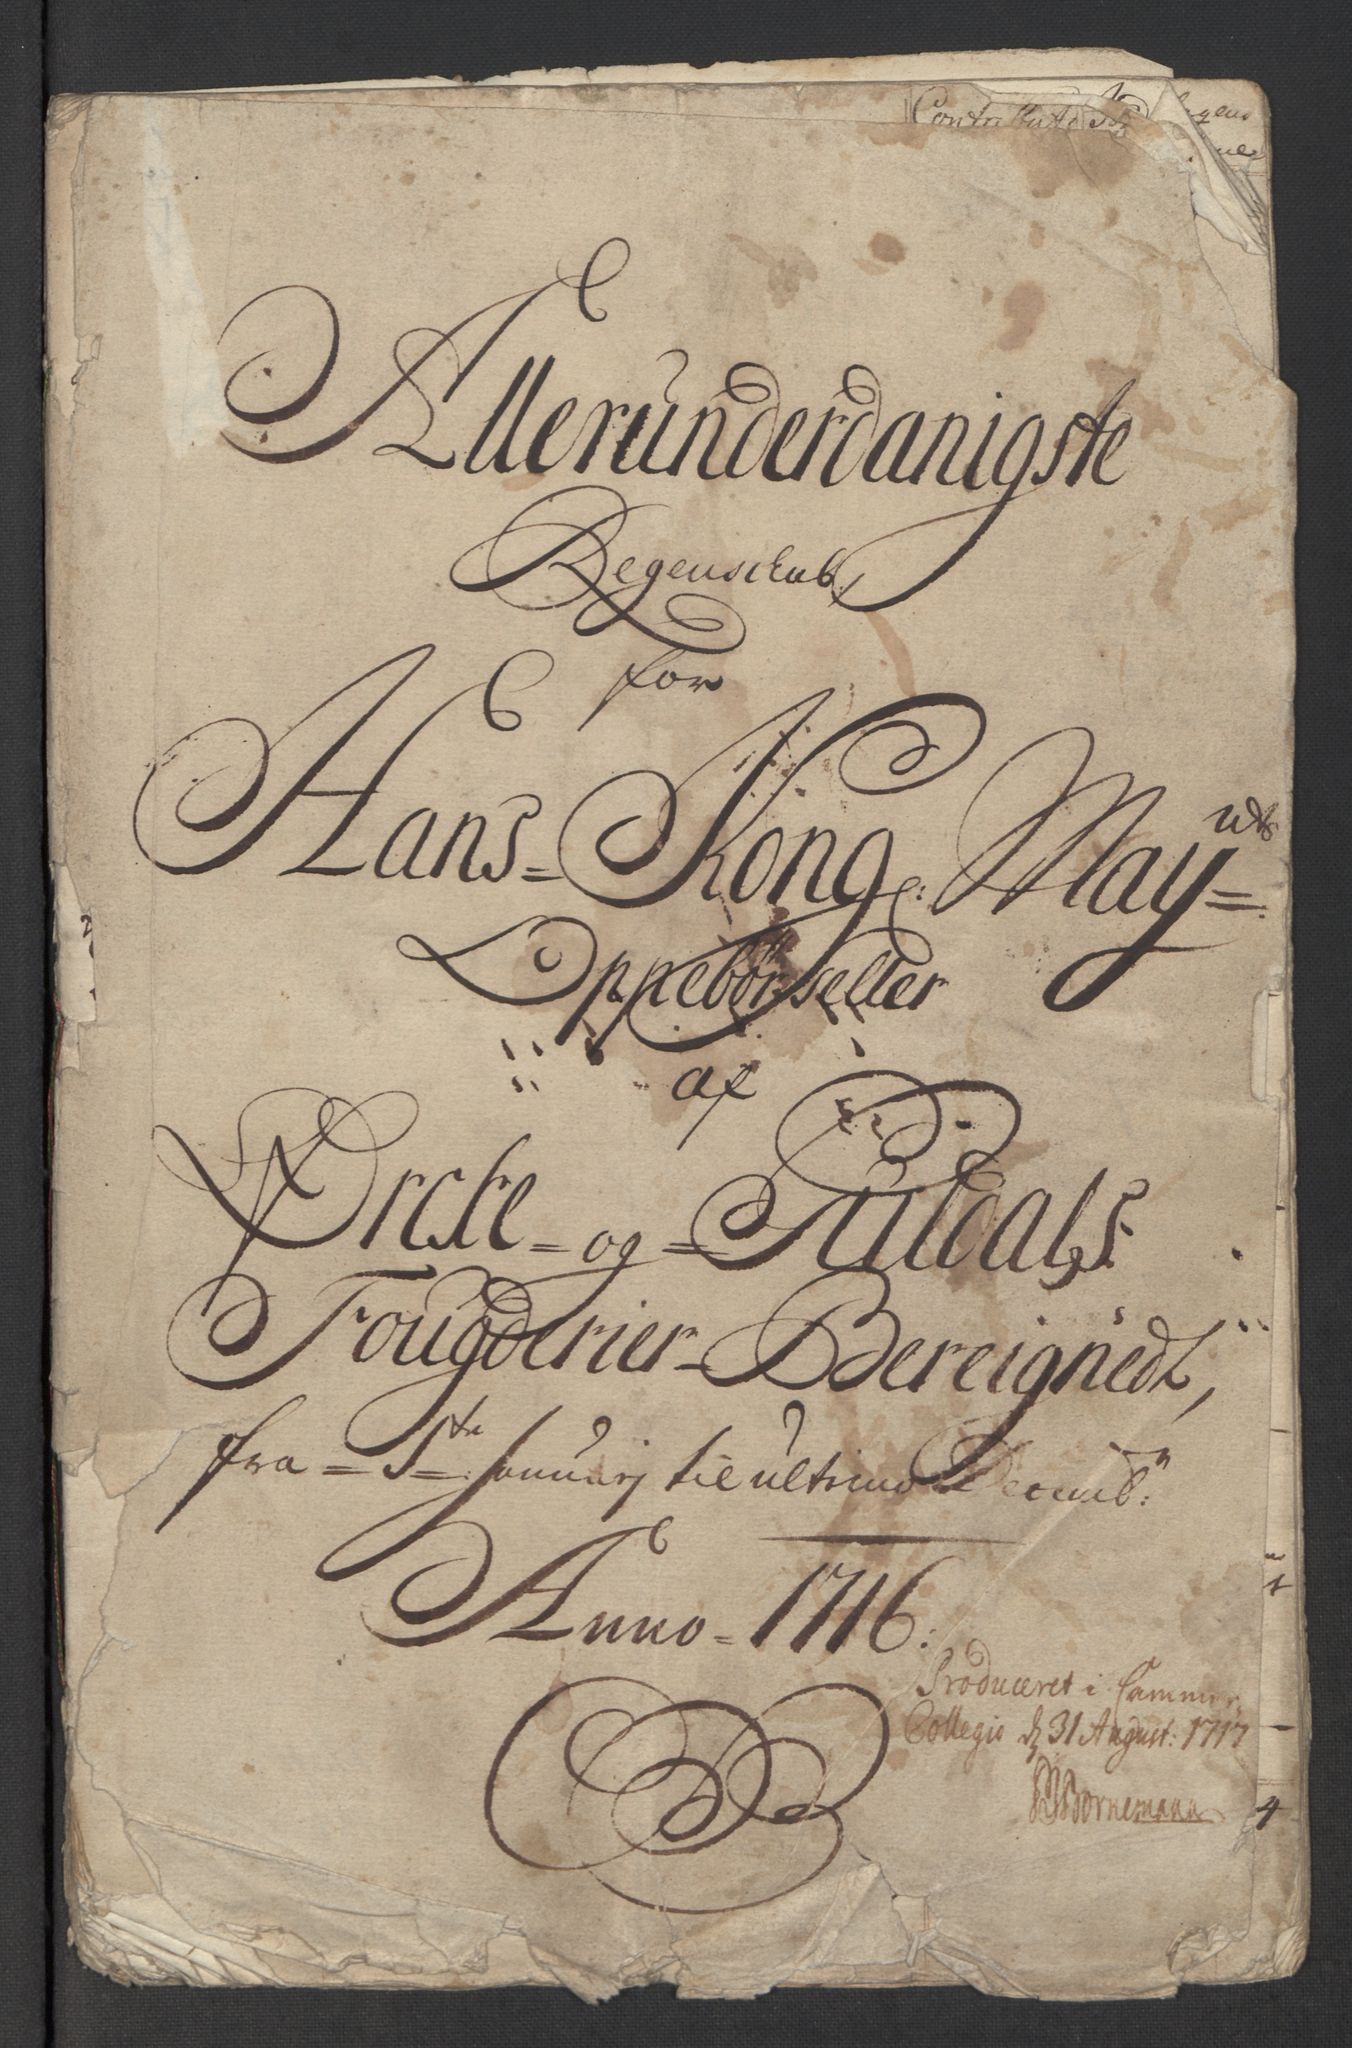 Allerunderdanigste
Regenskab
for
Hans = Kong: May.ts
Oppebørseller
af
Ørcke = og = Guldals
Fougderier = Bereignedt,
fra = 1ste Januarj til ultimo Decemb:r
Anno = 1716:
Produceret i Cammer
Collegio d 31 August: 1717
Bornemann
4